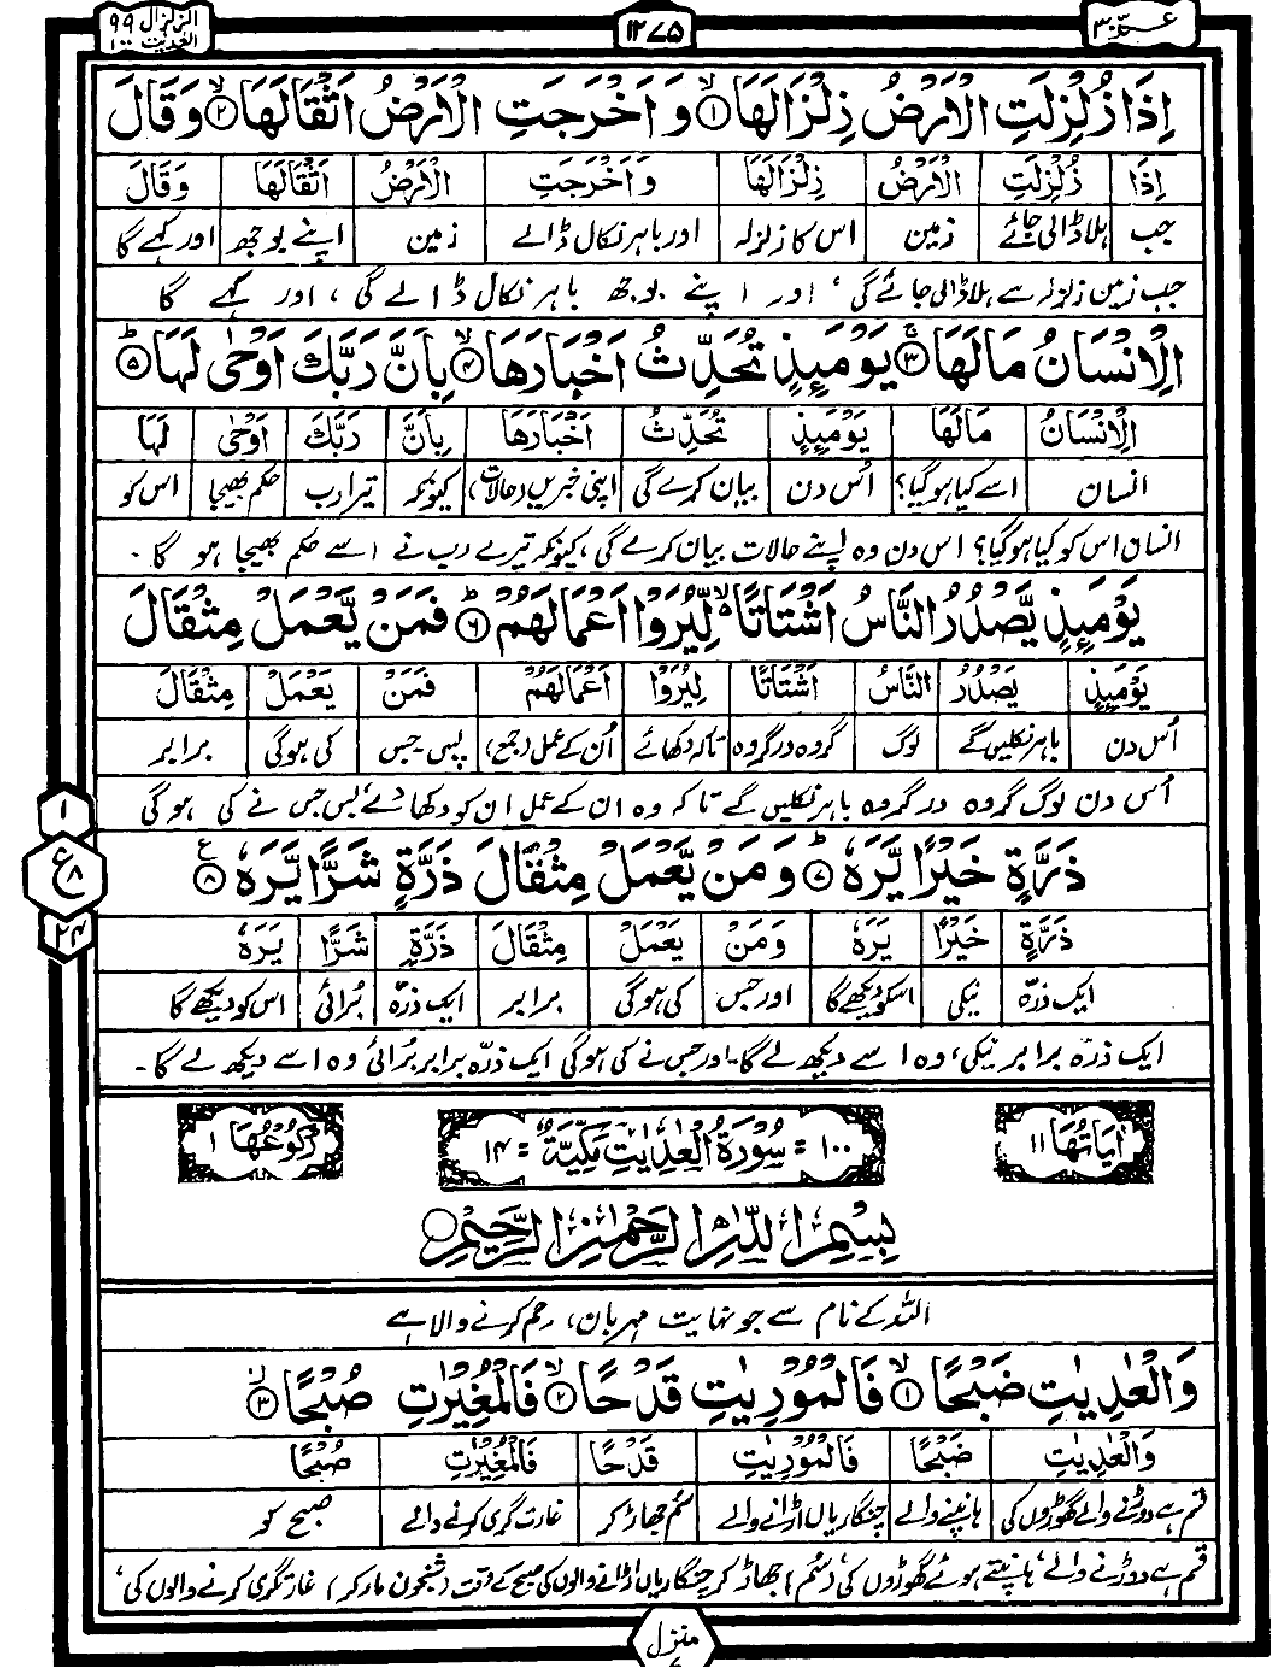 عمّ ٣٠
١٢٧٥
الزلزال ٩٩
العديت ١٠٠
اِذَا زُلْزِلَتِ الْاَرْضُ زِلْزَالَهَا ۙ﴿۱﴾ وَ اَخْرَجَتِ الْاَرْضُ اَثْقَالَهَا ۙ﴿۲﴾ وَ قَالَ
اِذَا زُلْزِلَتِ الْاَرْضُ زِلْزَالَهَا وَ اَخْرَجَتِ الْاَرْضُ اَثْقَالَهَا وَقَالَ
جب ہلا ڈالی جائے زمین اس کا زلزلہ اور باہر نکال ڈالے زمین اپنے بوجھ اور کہے گا
جب زمین زلزلہ سے ہلا ڈالی جائے گی، اور اپنے بوجھ باہر نکال ڈالے گی، اور کہے گا
الْاِنْسَانُ مَا لَهَا ۚ﴿۳﴾ يَوْمَئِذٍ تُحَدِّثُ اَخْبَارَهَا ۙ﴿۴﴾ بِاَنَّ رَبَّكَ اَوْحٰى لَهَا ؕ﴿۵﴾
الْاِنْسَانُ مَا لَهَا يَوْمَئِذٍ تُحَدِّثُ اَخْبَارَهَا بِاَنَّ رَبَّكَ اَوْحٰى لَهَا
انسان اسے کیا ہو گیا؟ اُس دن بیان کرے گی اپنی خبریں (حالات) کیونکہ تیرا رب حکم بھیجا اس کو
انسان اس کو کیا ہو گیا؟ اس دن وہ اپنے حالات بیان کرے گی، کیونکہ تیرے رب نے اسے حکم بھیجا ہو گا۔
يَوْمَئِذٍ يَّصْدُرُ النَّاسُ اَشْتَاتًا ۙ۬ لِّيُرَوْا اَعْمَالَهُمْ ؕ﴿۶﴾ فَمَنْ يَّعْمَلْ مِثْقَالَ
يَوْمَئِذٍ يَصْدُرُ النَّاسُ اَشْتَاتًا لِيُرَوْا اَعْمَالَهُمْ فَمَنْ يَعْمَلْ مِثْقَالَ
اُس دن باہر نکلیں گے لوگ گروہ در گروہ تاکہ دکھائے اُن کے عمل (جمع) پس۔جس کی ہوگی برابر
اُس دن لوگ گروہ در گروہ باہر نکلیں گے تاکہ وہ ان کے عمل ان کو دکھا دے، پس جس نے کی ہو گی
ذَرَّةٍ خَيْرًا يَّرَهٗ ؕ﴿۷﴾ وَ مَنْ يَّعْمَلْ مِثْقَالَ ذَرَّةٍ شَرًّا يَّرَهٗ ﴿۸﴾
ذَرَّةٍ خَيْرًا يَرَهٗ وَمَنْ يَعْمَلْ مِثْقَالَ ذَرَّةٍ شَرًّا يَرَهٗ
ایک ذرّہ نیکی اسکو دیکھے گا اور جس کی ہوگی برابر ایک ذرّہ بُرائی اس کو دیکھے گا
ایک ذرّہ برابر نیکی، وہ اسے دیکھ لے گا۔ اور جس نے کی ہوگی ایک ذرّہ برابر بُرائی وہ اسے دیکھ لے گا۔
۱
ع ۸
۲۴
اٰيَاتُهَا ۱۱
۱۰۰ = سُوْرَةُ الْعٰدِيٰتِ مَكِّيَّةٌ = ۱۴
رُكُوْعُهَا ۱
بِسْمِ اللّٰهِ الرَّحْمٰنِ الرَّحِيْمِ
اللہ کے نام سے جو نہایت مہربان، رحم کرنے والا ہے
وَالْعٰدِيٰتِ ضَبْحًا ۙ﴿۱﴾ فَالْمُوْرِيٰتِ قَدْحًا ۙ﴿۲﴾ فَالْمُغِيْرٰتِ صُبْحًا ۙ﴿۳﴾
وَالْعٰدِيٰتِ ضَبْحًا فَالْمُوْرِيٰتِ قَدْحًا فَالْمُغِيْرٰتِ صُبْحًا
قسم ہے دوڑنے والے گھوڑوں کی ہانپنے والے چنگاریاں اڑانے والے سُم جھاڑ کر غارت گری کرنے والے صبح کو
قسم ہے دوڑنے والے، ہانپتے ہوئے گھوڑوں کی، (سُم) جھاڑ کر چنگاریاں اڑانے والوں کی صبح کے وقت (شبخون مار کر) غارتگری کرنے والوں کی،
منزل